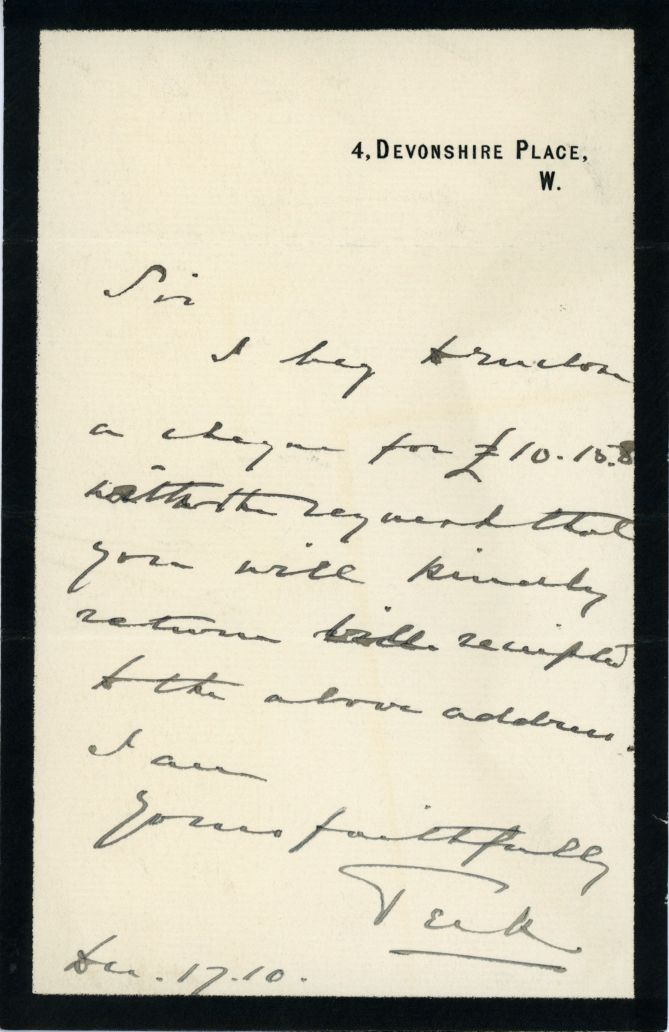 4, DEVONSHIRE PLACE,
W.
Sir
I beg to enclose
a cheque for £10.15.8
with the request that
you will kindly
return bill receipted
to the above address.
I am
yours faithfully
Teck
Dec. 17. 10.